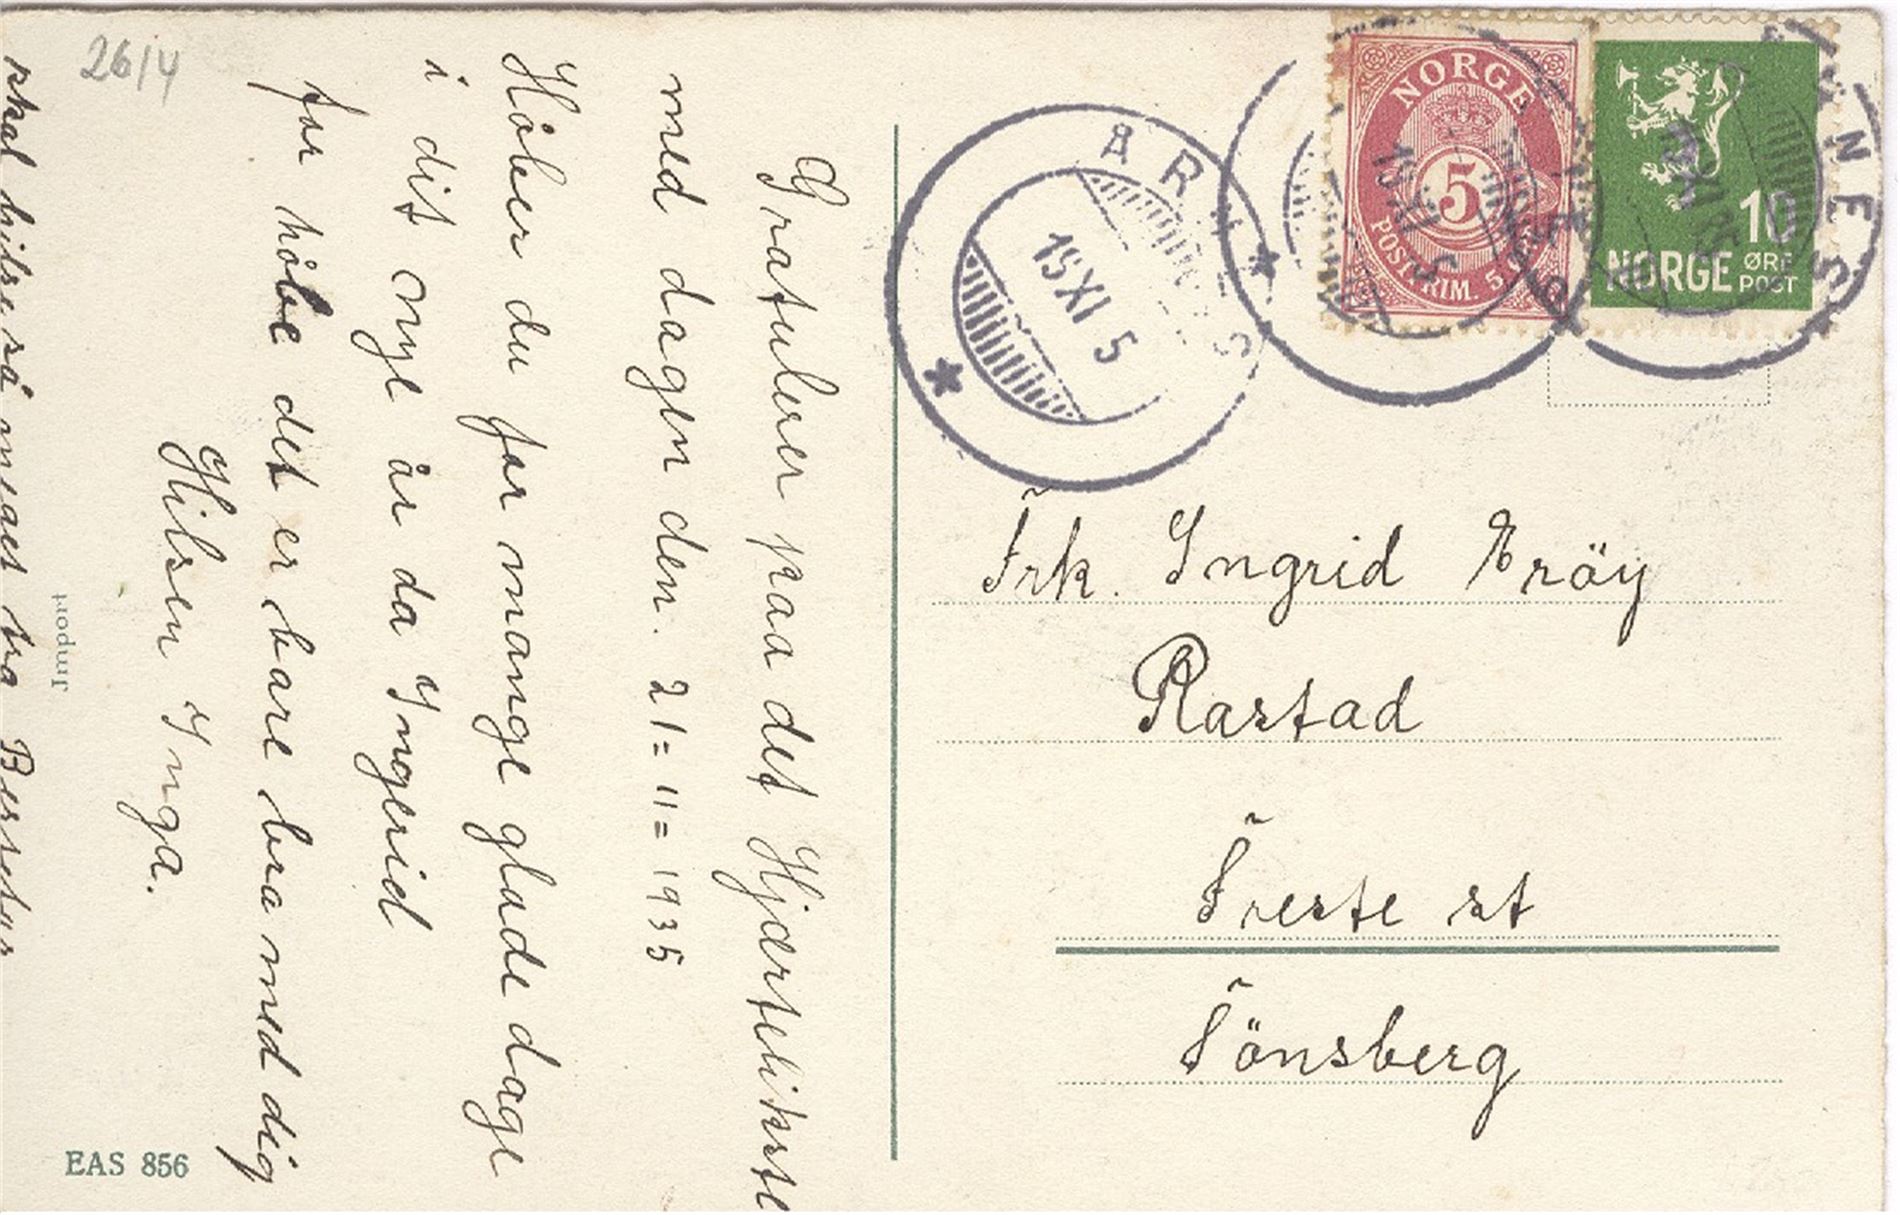 26/4
Gratulerer paa det Hjærtelikste
med dagen den. 21=11=1935
Höber du får mange glade dage
i dit nye år da Ingerid
får höbe det er bare bra med dig
Hilsen Inga.
skal hilse så meget fra
Import
EAS 856
NORGE
5
POSTFRIM. 5
10
NORGE ØRE POST
15 XI 5
Frk. Ingrid Eröy
Rastad
Freste st
Tönsberg